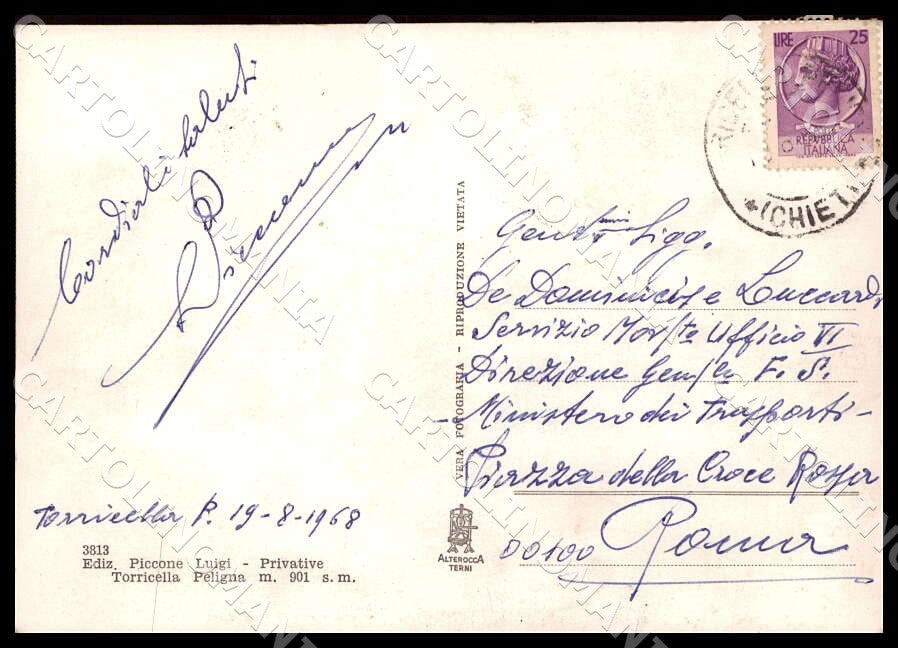 Cordiali saluti
Torricella P. 19-8-1968
3813
Ediz. Piccone Luigi - Privative
Torricella Peligna m. 901 s. m.
VERA FOTOGRAFIA - RIPRODUZIONE VIETATA
ALTEROCCA
TERNI
LIRE 25
REPVBBLICA
ITALIANA
(CHIETI)
Gent.mi Sigg.
De Dominicis e Luccardi
Servizio Ufficio VI
Direzione Gen/le F. S.
- Ministero dei Trasporti -
Piazza della Croce Rossa
00100 Roma
CARTOLINOMANIA